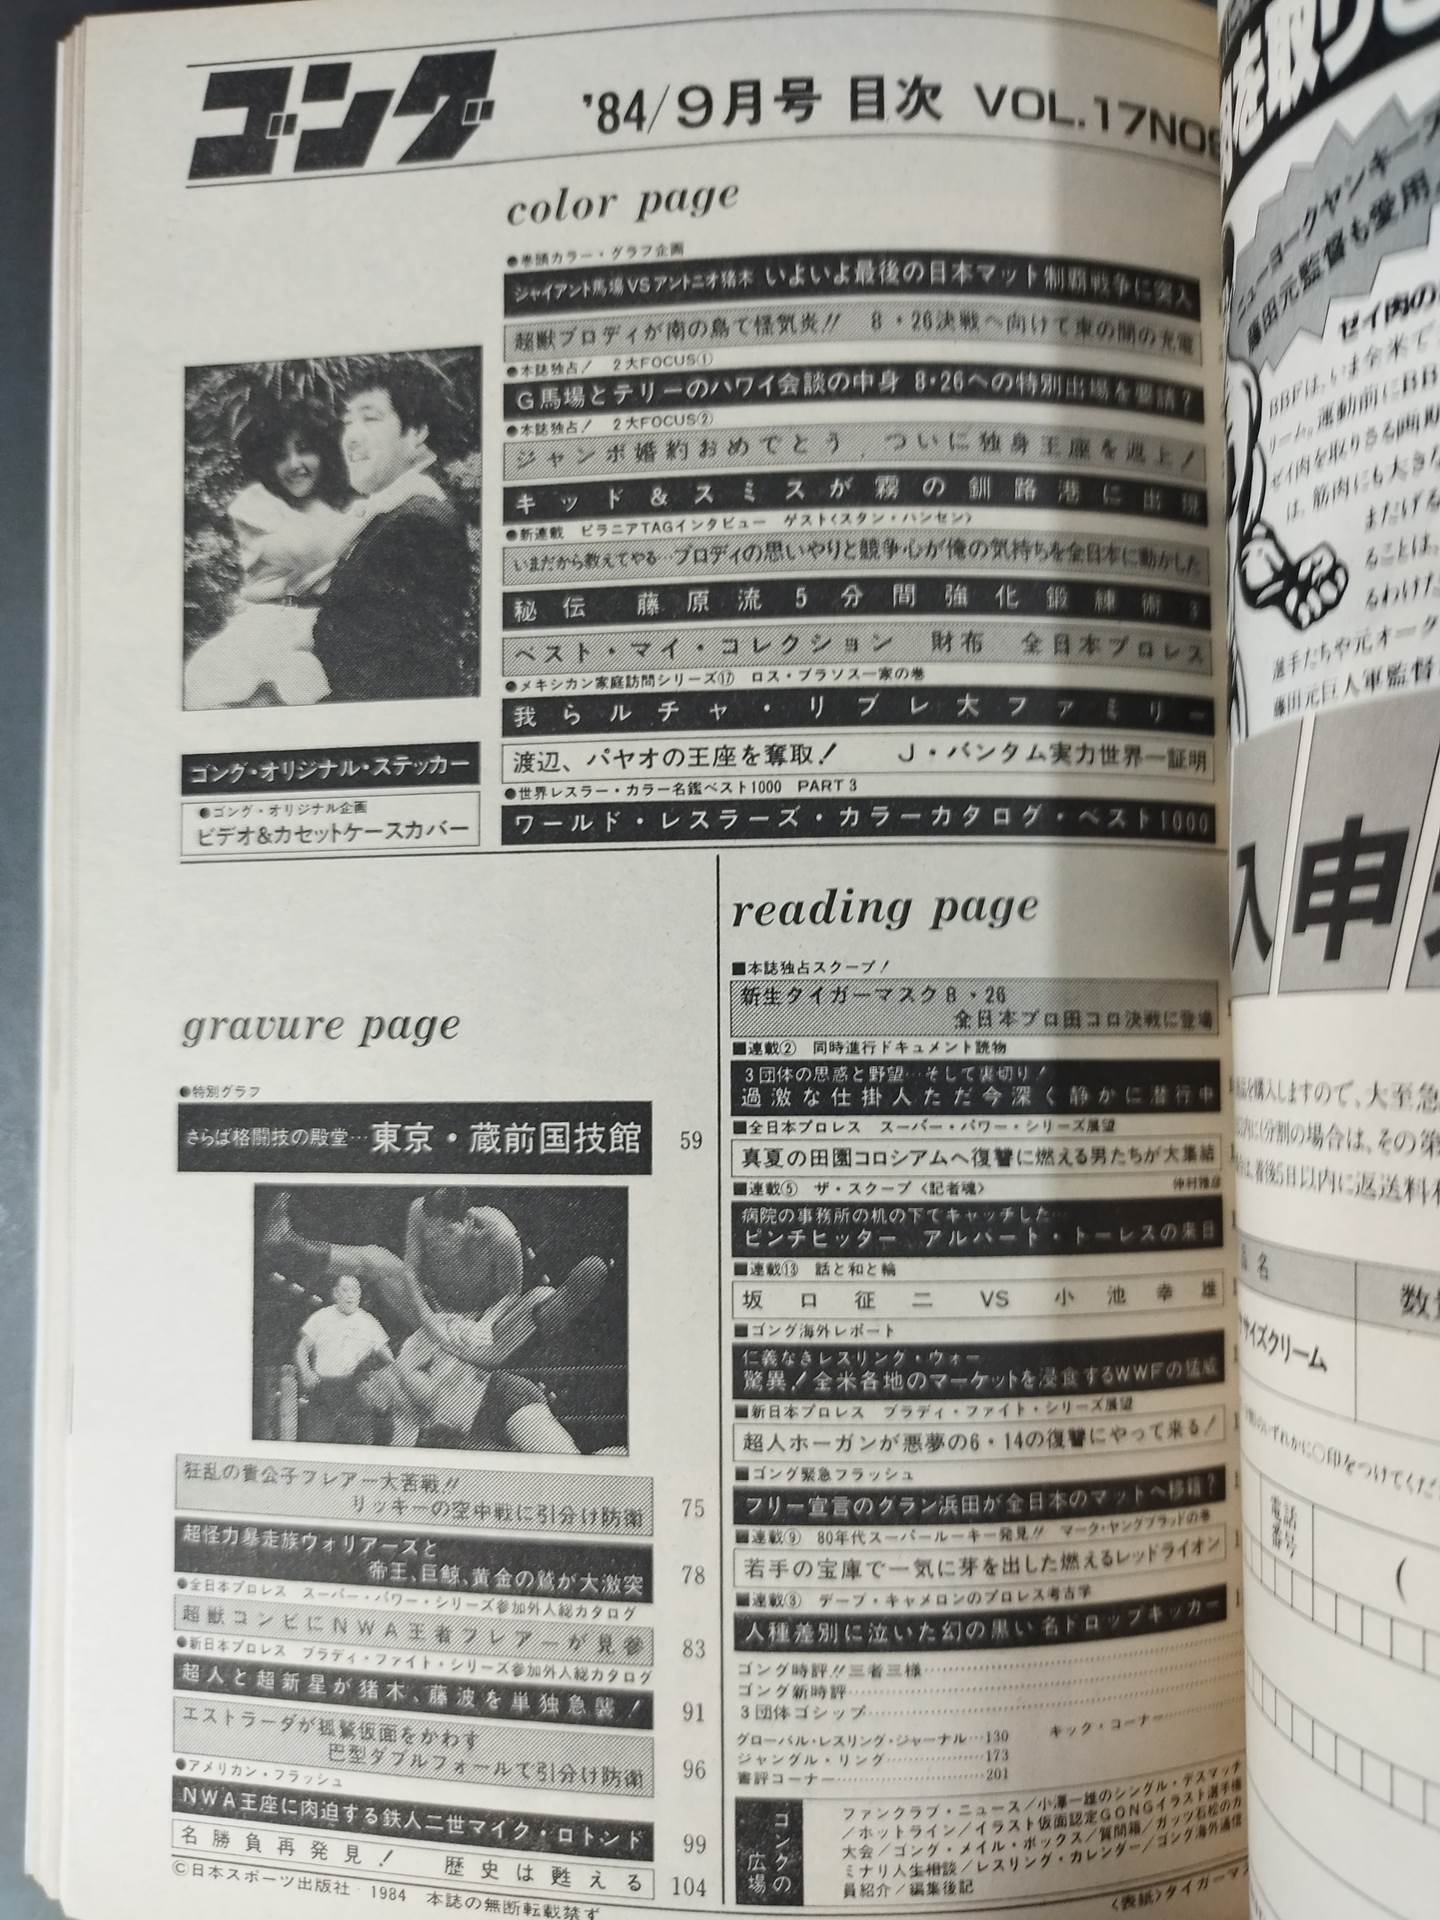 ゴング
'84/9月号 目次 VOL.17NO9
color page
●巻頭カラー・グラフ企画
ジャイアント馬場VSアントニオ猪木 いよいよ最後の日本マット制覇戦争に突入
超獣ブロディが南の島で怪気炎!! 8・26決戦へ向けて束の間の充電
●本誌独占! 2大FOCUS①
G馬場とテリーのハワイ会談の中身 8・26への特別出場を要請?
●本誌独占! 2大FOCUS②
ジャンボ婚約おめでとう ついに独身王座を返上!
キッド&スミスが霧の釧路港に出現
●新連載 ピラニアTAGインタビュー ゲスト〈スタン・ハンセン〉
いまだから教えてやる…ブロディの思いやりと競争心が俺の気持ちを全日本に動かした
秘伝 藤原流5分間強化鍛練術3
ベスト・マイ・コレクション 財布 全日本プロレス
●メキシカン家庭訪問シリーズ⑰ ロス・ブラソス一家の巻
我らルチャ・リブレ大ファミリー
渡辺、パヤオの王座を奪取! J・バンタム実力世界一証明
●世界レスラー・カラー名鑑ベスト1000 PART3
ワールド・レスラーズ・カラーカタログ・ベスト1000
ゴング・オリジナル・ステッカー
●ゴング・オリジナル企画
ビデオ&カセットケースカバー
gravure page
●特別グラフ
さらば格闘技の殿堂…東京・蔵前国技館 59
狂乱の貴公子フレアー大苦戦!!
リッキーの空中戦に引分け防衛 75
超怪力暴走族ウォリアーズと
帝王、巨鯨、黄金の鷲が大激突 78
●全日本プロレス スーパー・パワー・シリーズ参加外人総カタログ
超獣コンビにNWA王者フレアーが見参 83
●新日本プロレス ブラディ・ファイト・シリーズ参加外人総カタログ
超人と超新星が猪木、藤波を単独急襲! 91
エストラーダが狐鷲仮面をかわす
巴型ダブルフォールで引分け防衛 96
●アメリカン・フラッシュ
NWA王座に肉迫する鉄人二世マイク・ロトンド 99
名勝負再発見! 歴史は甦える 104
©日本スポーツ出版社・1984 本誌の無断転載禁ず
reading page
■本誌独占スクープ!
新生タイガーマスク8・26
全日本プロ田コロ決戦に登場
■連載② 同時進行ドキュメント読物
3団体の思惑と野望…そして裏切り!
過激な仕掛人ただ今深く静かに潜行中
■全日本プロレス スーパー・パワー・シリーズ展望
真夏の田園コロシアムへ復讐に燃える男たちが大集結
■連載⑤ ザ・スクープ〈記者魂〉
病院の事務所の机の下でキャッチした…
ピンチヒッター アルバート・トーレスの来日
■連載⑬ 話と和と輪
坂口征二 VS 小池幸雄
■ゴング海外レポート
仁義なきレスリング・ウォー
驚異!全米各地のマーケットを浸食するWWFの猛威
■新日本プロレス ブラディ・ファイト・シリーズ展望
超人ホーガンが悪夢の6・14の復讐にやって来る!
■ゴング緊急フラッシュ
フリー宣言のグラン浜田が全日本のマットへ移籍?
■連載⑨ 80年代スーパールーキー発見!! マーク・ヤングブラッドの巻
若手の宝庫で一気に芽を出した燃えるレッドライオン
■連載③ デーブ・キャメロンのプロレス考古学
人種差別に泣いた幻の黒い名ドロップキッカー
ゴング時評!!三者三様
ゴング新時評
3団体ゴシップ
グローバル・レスリング・ジャーナル…130 キック・コーナー
ジャングル・リング…173
書評コーナー…201
ゴングの広場
ファンクラブ・ニュース/小澤一雄のシングル・デスマッチ
/ホットライン/イラスト仮面認定GONGイラスト選手権
大会/ゴング・メイル・ボックス/質問箱/ガッツ石松のカ
ミナリ人生相談/レスリング・カレンダー/ゴング海外通信
員紹介/編集後記
〈表紙〉タイガーマ
を取り
ニューヨークヤンキー
藤田元監督も愛用
ゼイ肉の
BBFは、いま全米で
リーム。運動前にBB
ゼイ肉を取りさる画期
は、筋肉にも大きな
まだげる
ることは、
るわけた
選手たちや元オーク
藤田元巨人軍監督
入申
購入しますので、大至急
分割の場合は、その第
着後5日以内に返送料
品名
数
サイズクリーム
いずれかに○印をつけてくだ
電話番号
(